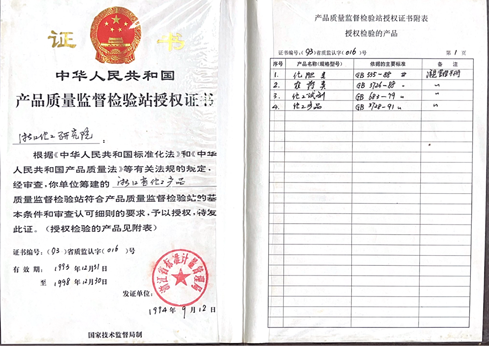 证 书
中华人民共和国
产品质量监督检验站授权证书
浙江化工研究院:
根据《中华人民共和国标准化法》和《中华
人民共和国产品质量法》等有关法规的规定,
经审查,你单位筹建的浙江省化工产品
质量监督检验站符合产品质量监督检验站的基
本条件和审查认可细则的要求,予以授权,特发
此证。(授权检验的产品见附表)
证书编号:(93)省质监认字(016)号
有效期:1993年12月31日
至 1998年12月30日
发证单位:
浙江省标准计量管理局
1994年9月12日
国家技术监督局制
产品质量监督检验站授权证书附表
授权检验的产品
证书编号:(93)省质监认字(016)号 第1页
序号 产品名称(规格型号) 依据的主要标准 备注
1. 化肥类 GB 535-88
2. 农药类 GB 3726-88 〃
3. 化工试剂 GB 684-79 〃
4. 化工产品 GB 3728-91 〃